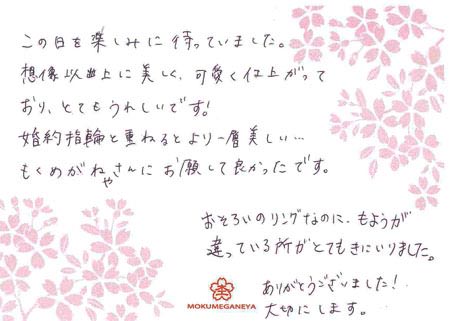 この日を楽しみに待っていました。
想像以上に美しく、可愛く仕上がって
おり、とてもうれしいです!
婚約指輪と重ねるとより一層美しい…
もくめがねやさんにお願して良かったです。
おそろいのリングなのに、もようが
違っている所がとてもきにいりました。
ありがとうございました!
大切にします。
MOKUMEGANEYA